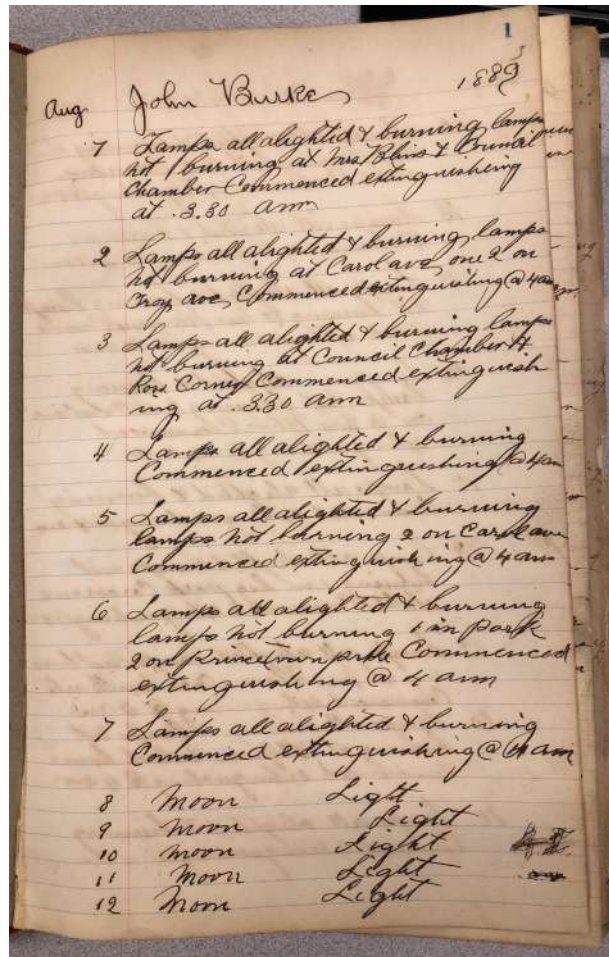 1
Aug John Burke 1889
1 Lamps all alightid & burning lamps
not burning at Mrs & Council
Chamber Commenced extinguishing
at .3.30 am
2 Lamps all alightid & burning lamps
not burning at Carol ave, one 2 on
Troy ave, Commenced extinguishing @ 4 am
3 Lamps all alightid & burning lamps
not burning at Council Chamber &
Ross Corner Commenced extinguish
ing at .3.30 am
4 Lamps all alightid & burning
Commenced extinguishing @ 4 am
5 Lamps all alightid & burning
lamps not burning 2 on Carol ave
Commenced extinguishing @ 4 am
6 Lamps all alightid & burning
lamps not burning 1 in Park
2 on Princetown Commenced
extinguishing @ 4 am
7 Lamps all alightid & burning
Commenced extinguishing @ 4 am
8 Moon Light
9 Moon Light
10 Moon Light
11 Moon Light
12 Moon Light